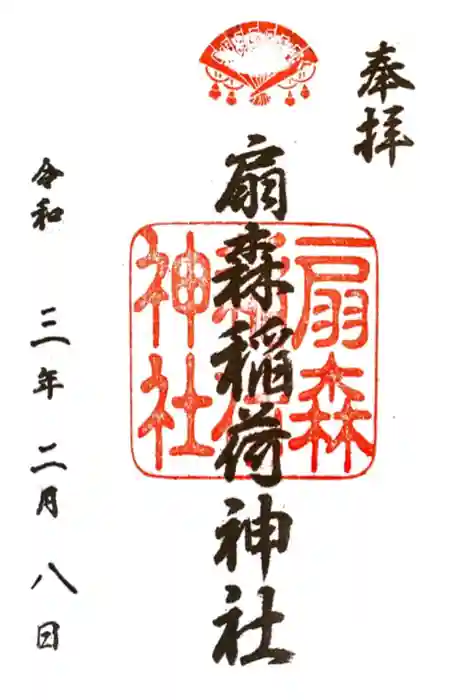 奉拝
扇森稲荷神社
扇森
稲荷
神社
令和 三年 二月 八日